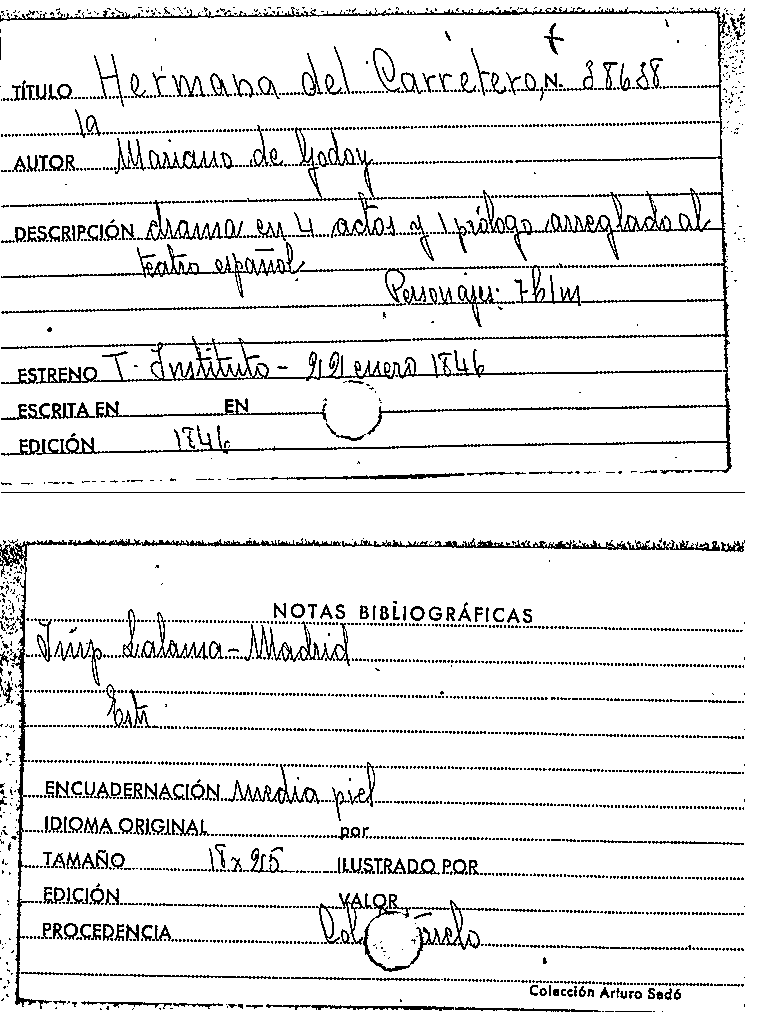 TÍTULO Hermana del Carretero, N. 38638
la
AUTOR Mariano de Godoy
DESCRIPCIÓN drama en 4 actos y 1 prólogo arreglado al
teatro español
Personajes: 7h1m
ESTRENO T. Instituto - 22 enero 1846
ESCRITA EN EN
EDICIÓN 1846
NOTAS BIBLIOGRÁFICAS
Imp Lalama - Madrid
ENCUADERNACIÓN media piel
IDIOMA ORIGINAL por
TAMAÑO 18 x 25 ILUSTRADO POR
EDICIÓN VALOR
PROCEDENCIA
Colección Arturo Sedó